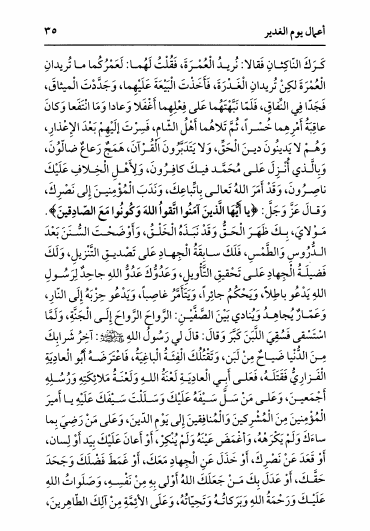 أعمال يوم الغدير ٣٥
كَرَكَ النَّاكِثَانِ فَقَالا: نُرِيدُ الْعُمْرَةَ، فَقُلْتَ لَهُمَا: لَعَمْرُكُمَا مَا تُرِيدَانِ
الْعُمْرَةَ لكِنْ تُرِيدَانِ الْغَدْرَةَ، فَأَخَذْتَ الْبَيْعَةَ عَلَيْهِمَا، وَجَدَّدْتَ الْمِيثَاقَ،
فَجَدَّا فِي النِّفَاقِ، فَلَمَّا نَبَّهْتَهُمَا عَلَى فِعْلِهِمَا أَغْفَلَا وَعَادَا وَمَا انْتَفَعَا وَكَانَ
عَاقِبَةُ أَمْرِهِمَا خُسْراً، ثُمَّ تَلَاهُمَا أَهْلُ الشَّامِ، فَسِرْتَ إِلَيْهِمْ بَعْدَ الْإِعْذَارِ،
وَهُمْ لَا يَدِينُونَ دِينَ الْحَقِّ، وَلَا يَتَدَبَّرُونَ الْقُرْآنَ، هَمَجٌ رَعَاعٌ ضَالُّونَ،
وَبِالَّذِي أُنْزِلَ عَلَى مُحَمَّدٍ فِيكَ كَافِرُونَ، وَلِأَهْلِ الْخِلَافِ عَلَيْكَ
نَاصِرُونَ، وَقَدْ أَمَرَ اللهُ تَعَالَى بِاتِّبَاعِكَ، وَنَدَبَ الْمُؤْمِنِينَ إِلَى نَصْرِكَ،
وَقَالَ عَزَّ وَجَلَّ: ﴿يا أَيُّهَا الَّذِينَ آمَنُوا اتَّقُوا اللهَ وَكُونُوا مَعَ الصَّادِقِينَ﴾.
مَوْلَايَ، بِكَ ظَهَرَ الْحَقُّ وَقَدْ نَبَذَهُ الْخَلْقُ، وَأَوْضَحْتَ السُّنَنَ بَعْدَ
الدُّرُوسِ وَالطَّمْسِ، فَلَكَ سَابِقَةُ الْجِهَادِ عَلَى تَصْدِيقِ التَّنْزِيلِ، وَلَكَ
فَضِيلَةُ الْجِهَادِ عَلَى تَحْقِيقِ التَّأْوِيلِ، وَعَدُوُّكَ عَدُوُّ اللهِ جَاحِدٌ لِرَسُولِ
اللهِ يَدْعُو بَاطِلاً، وَيَحْكُمُ جَائِراً، وَيَتَأَمَّرُ غَاصِباً، وَيَدْعُو حِزْبَهُ إِلَى النَّارِ،
وَعَمَّارٌ يُجَاهِدُ وَيُنَادِي بَيْنَ الصَّفَّيْنِ: الرَّوَاحَ الرَّوَاحَ إِلَى الْجَنَّةِ، وَلَمَّا
اسْتَسْقَى فَسُقِيَ اللَّبَنَ كَبَّرَ وَقَالَ: قَالَ لِي رَسُولُ اللهِ ﷺ: آخِرُ شَرَابِكَ
مِنَ الدُّنْيَا ضَيَاحٌ مِنْ لَبَنٍ، وَتَقْتُلُكَ الْفِئَةُ الْبَاغِيَةُ، فَاعْتَرَضَهُ أَبُو الْعَادِيَةِ
الْفَزَارِيُّ فَقَتَلَهُ، فَعَلَى أَبِي الْعَادِيَةِ لَعْنَةُ اللهِ وَلَعْنَةُ مَلَائِكَتِهِ وَرُسُلِهِ
أَجْمَعِينَ، وَعَلَى مَنْ سَلَّ سَيْفَهُ عَلَيْكَ وَسَلَلْتَ سَيْفَكَ عَلَيْهِ يَا أَمِيرَ
الْمُؤْمِنِينَ مِنَ الْمُشْرِكِينَ وَالْمُنَافِقِينَ إِلَى يَوْمِ الدِّينِ، وَعَلَى مَنْ رَضِيَ بِمَا
سَاءَكَ وَلَمْ يَكْرَهْهُ، وَأَغْمَضَ عَيْنَهُ وَلَمْ يُنْكِرْ، أَوْ أَعَانَ عَلَيْكَ بِيَدٍ أَوْ لِسَانٍ،
أَوْ قَعَدَ عَنْ نَصْرِكَ، أَوْ خَذَلَ عَنِ الْجِهَادِ مَعَكَ، أَوْ غَمَطَ فَضْلَكَ وَجَحَدَ
حَقَّكَ، أَوْ عَدَلَ بِكَ مَنْ جَعَلَكَ اللهُ أَوْلَى بِهِ مِنْ نَفْسِهِ، وَصَلَوَاتُ اللهِ
عَلَيْكَ وَرَحْمَةُ اللهِ وَبَرَكَاتُهُ وَتَحِيَّاتُهُ، وَعَلَى الأَئِمَّةِ مِنْ آلِكَ الطَّاهِرِينَ،